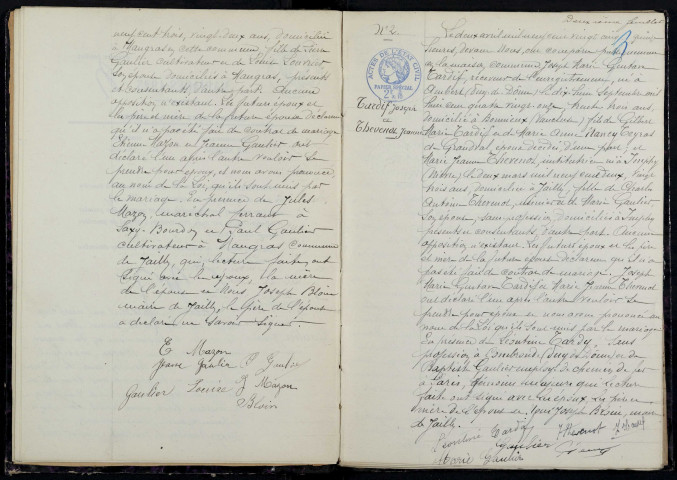 neuf cent trois, vingt-deux ans, domiciliée
à Naugras, cette commune, fille de Pierre
Gaulier cultivateur et de Louise
son épouse domiciliés à Naugras, présents
et consentants d'autre part. Aucune
opposition n'existant. Les futurs époux et
les père et mère de la future épouse déclarent
qu'il n'a pas été fait de contrat de mariage
Etienne Mazon et Jeanne Gaulier ont
déclaré l'un après l'autre vouloir se
prendre pour époux, et nous avons prononcé
au nom de la Loi, qu'ils sont unis par
le mariage. En présence de Jules
Mazon, maréchal ferrant à
Saxy-Bourdon et Paul Gaulier
cultivateur à Naugras commune
de Jailly, qui, lecture faite, ont
signé avec les époux, la mère
de l'épouse et Nous Joseph Bloin
maire de Jailly, le père de l'épouse
a déclaré ne savoir signer.
E Mazon
Jeanne Gaulier P Gaulier
Gaulier J Mazon
Bloin
Deuxième feuillet
N° 2
ACTES DE L'ETAT CIVIL
PAPIER SPECIAL
Tardif Joseph
et
Thevenot Jeanne
Le deux avril mil neuf cent vingt cinq
heures, devant Nous, ont comparu publiquement
en la maison commune Joseph Marie Gustave
Tardif, receveur de l'enregistrement, né à
Ambert (Puy de Dôme) le dix huit Septembre mil
huit cent quatre vingt onze, trente trois ans,
domicilié à Bonnieux (Vaucluse) fils de Gilbert
Marie Tardif et de Marie Anne Nancy Teyras
de Grandval époux décédés d'une part, et
Marie Jeanne Thevenot, institutrice née à Imphy
(Nièvre) le deux mars mil neuf cent deux, vingt
trois ans, domiciliée à Jailly, fille de Charles
Antoine Thevenot, et de Marie Gaulier
son épouse, sans profession, domiciliés à Imphy
présents et consentants, d'autre part. Aucune
opposition n'existant. Les futurs époux et les père
et mère de la future épouse déclarent qu'il n'a
pas été fait de contrat de mariage. Joseph
Marie Gustave Tardif et Marie Jeanne Thevenot
ont déclaré l'un après l'autre vouloir se
prendre pour époux et nous avons prononcé au
nom de la Loi qu'ils sont unis par le mariage
En présence de Léontine Tardy, sans
profession, à Combronde (Puy de Dôme) et de
Baptiste Gaulier employé de chemins de fer
à Paris, témoins majeurs qui lecture
faite ont signé avec les époux, les père et
mère de l'épouse et Nous Joseph Bloin, maire
de Jailly.
Léontine Tardy Thevenot
Gaulier
Marie Gaulier